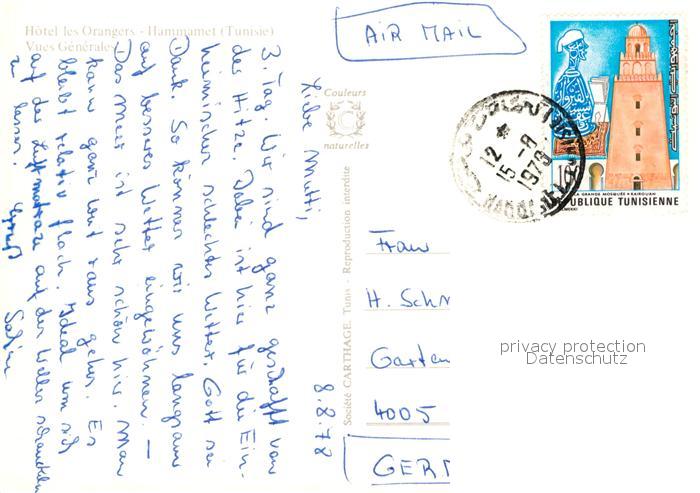 Hôtel les Orangers - Hammamet (Tunisie)
Vues Générales
AIR MAIL
Couleurs
C
naturelles
Société CARTHAGE, Tunis - Reproduction interdite
8.8.78
Liebe Mutti,
3. Tag. Wir sind ganz geschafft von
der Hitze. Dabei ist hier für die Ein-
heimischen schlechtes Wetter. Gott sei
Dank. So können wir uns langsam
auf besseres Wetter eingewöhnen. —
Das Meer ist sehr schön hier. Man
kann ganz weit raus gehen. Es
bleibt relativ flach. Ideal um sich
auf der Luftmatratze auf den Wellen schaukeln
z lassen.
Gruß
Frau
H. Schn
Garten
4005
GERM
12
15-8
1978
LA GRANDE MOSQUÉE - KAIROUAN
REPUBLIQUE TUNISIENNE
privacy protection
Datenschutz